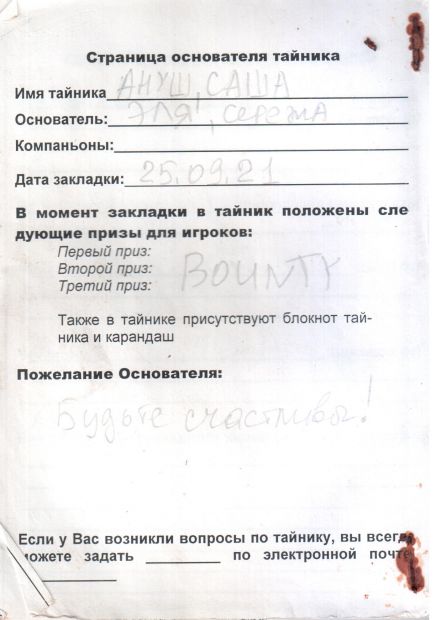 Страница основателя тайника
Имя тайника АНУШ, САША
Основатель: ЭЛЯ, Сережа
Компаньоны:
Дата закладки: 25.09.21
В момент закладки в тайник положены сле
дующие призы для игроков:
Первый приз:
Второй приз: BOUNTY
Третий приз:
Также в тайнике присутствуют блокнот тай-
ника и карандаш
Пожелание Основателя:
Будьте счастливы!
Если у Вас возникли вопросы по тайнику, вы всегд
можете задать по электронной почте